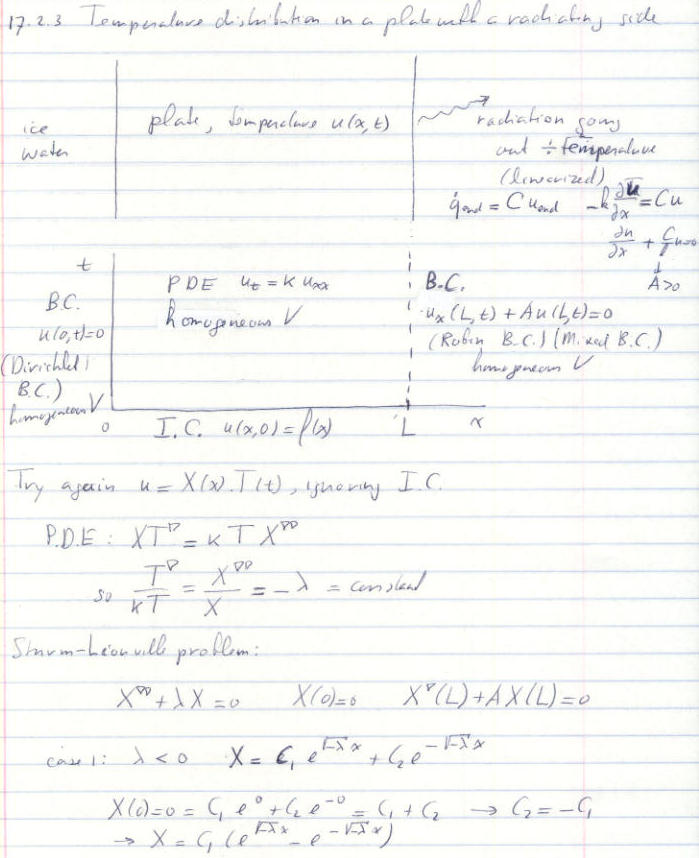 17.2.3 Temperature distribution in a plate with a radiating side
ice
water
plate, temperature u(x,t)
radiation going
out ÷ temperature
(linearized)
q̇end = C uend   -k ∂u/∂x = Cu
∂u/∂x + C/k u=0
↓
A>0
t
B.C.
u(0,t)=0
(Dirichlet
B.C.)
homogeneous V
PDE ut = κ uxx
homogeneous V
B.C.
ux(L,t) + Au(L,t)=0
(Robin B.C.) (Mixed B.C.)
homogeneous V
0   I.C. u(x,0)=f(x)   L   x
Try again u = X(x).T(t), ignoring I.C.
P.D.E: XT' = κ T X''
so T'/κT = X''/X = -λ = constant
Sturm-Liouville problem:
X'' + λX = 0   X(0)=0   X'(L)+AX(L)=0
case 1: λ<0   X = C₁ e^{√-λ x} + C₂ e^{-√-λ x}
X(0)=0 = C₁ e⁰ + C₂ e^{-0} = C₁ + C₂ → C₂ = -C₁
→ X = C₁ (e^{√-λ x} - e^{-√-λ x})